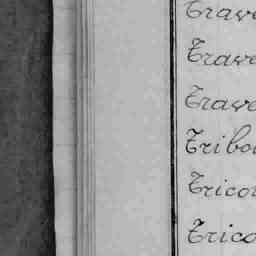 Trave
Trave
Trave
Tribou
Tricou
Trico